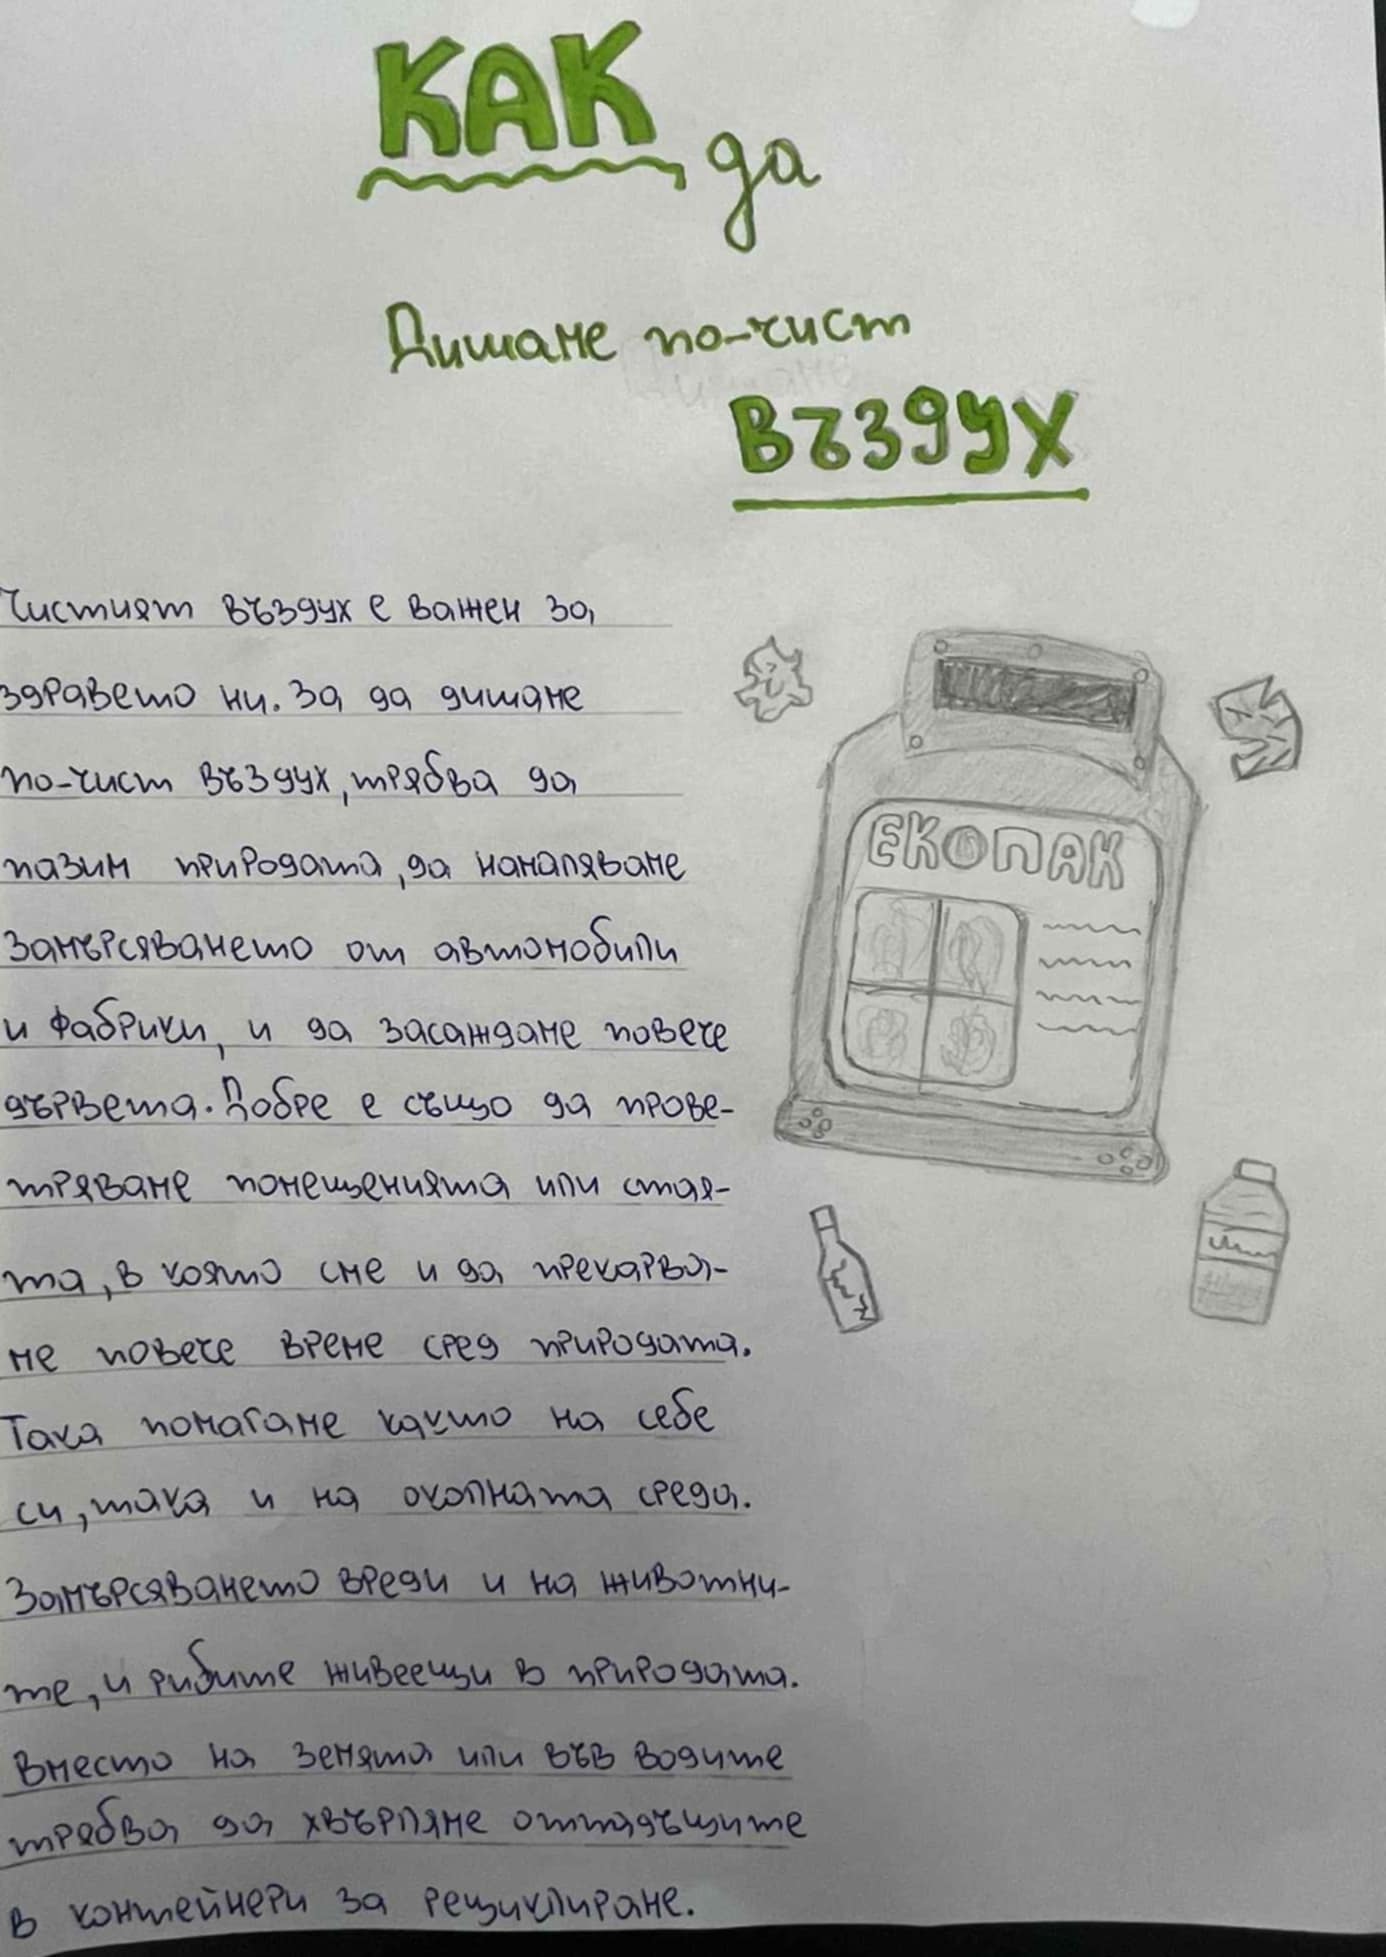 КАК
да
Дишаме по-чист
ВЪЗДУХ
Чистият въздух е важен за
здравето ни. За да дишаме
по-чист въздух, трябва да
пазим природата, да намаляваме
замърсяването от автомобили
и фабрики, и да засаждаме повече
дървета. Добре е също да прове-
тряваме помещенията или стая-
та, в която сме и да прекарва-
ме повече време сред природата.
Така помагаме както на себе
си, така и на околната среда.
Замърсяването вреди и на животни-
те, и рибите живеещи в природата.
Вместо на земята или във водите
трябва да хвърляме отпадъците
в контейнери за рециклиране.
ЕКОПАК